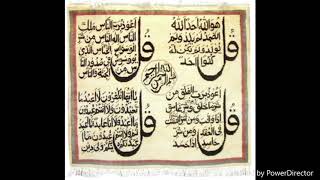 قل
هو الله احد الله
الصمد لم يلد ولم
يولد ولم يكن له
كفوا احد
قل
اعوذ برب الناس ملك
الناس اله الناس من شر
الوسواس الخناس الذي
يوسوس في صدور الناس
من الجنة والناس
بسم الله الرحمن الرحيم
قل
اعوذ برب الفلق من
شر ما خلق ومن شر غاسق
اذا وقب ومن شر
في العقد ومن شر
حاسد اذا حسد
قل
يا ايها الكافرون لا اعبد ما
تعبدون ولا انتم عابدون ما
اعبد ولا انا عابد ما
عبدتم ولا انتم عابدون ما
دين
by PowerDirector